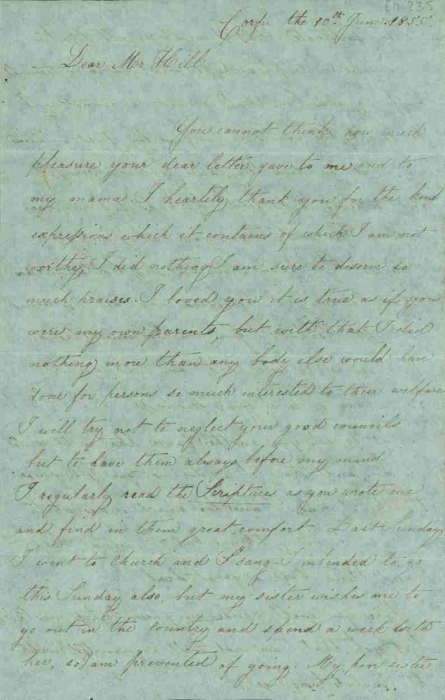 Corfu the 10th June 1855.
Dear Mr Hill
You cannot think how much
pleasure your dear letter gave to me and to
my mama. I heartily thank you for the kind
expressions which it contains of which I am not
worthy, I did nothing I am sure to deserve so
much praises. I loved you it is true as if you
were my own parents, but with that I did
nothing more than any body else would have
done for persons so much interested to their welfare
I will try not to neglect your good councils
but to have them always before my mind
I regularly read the Scriptures as you wrote me
and find in them great comfort. Last Sunday
I went to church and I sang. I intended to go
this Sunday also, but my sister wishes me to
go out in the country and spend a week with
her, so I am prevented of going. My sister